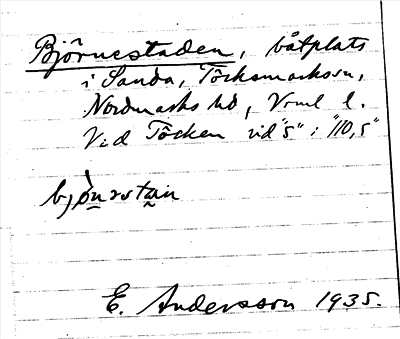 Björnestaden, båtplats
i Sanda, Töcksmarks sn,
Nordmarks hd, Vrml l.
Vid Töcken vid "5" i "110,5"
bjö̀nrstan
E. Andersson 1935.